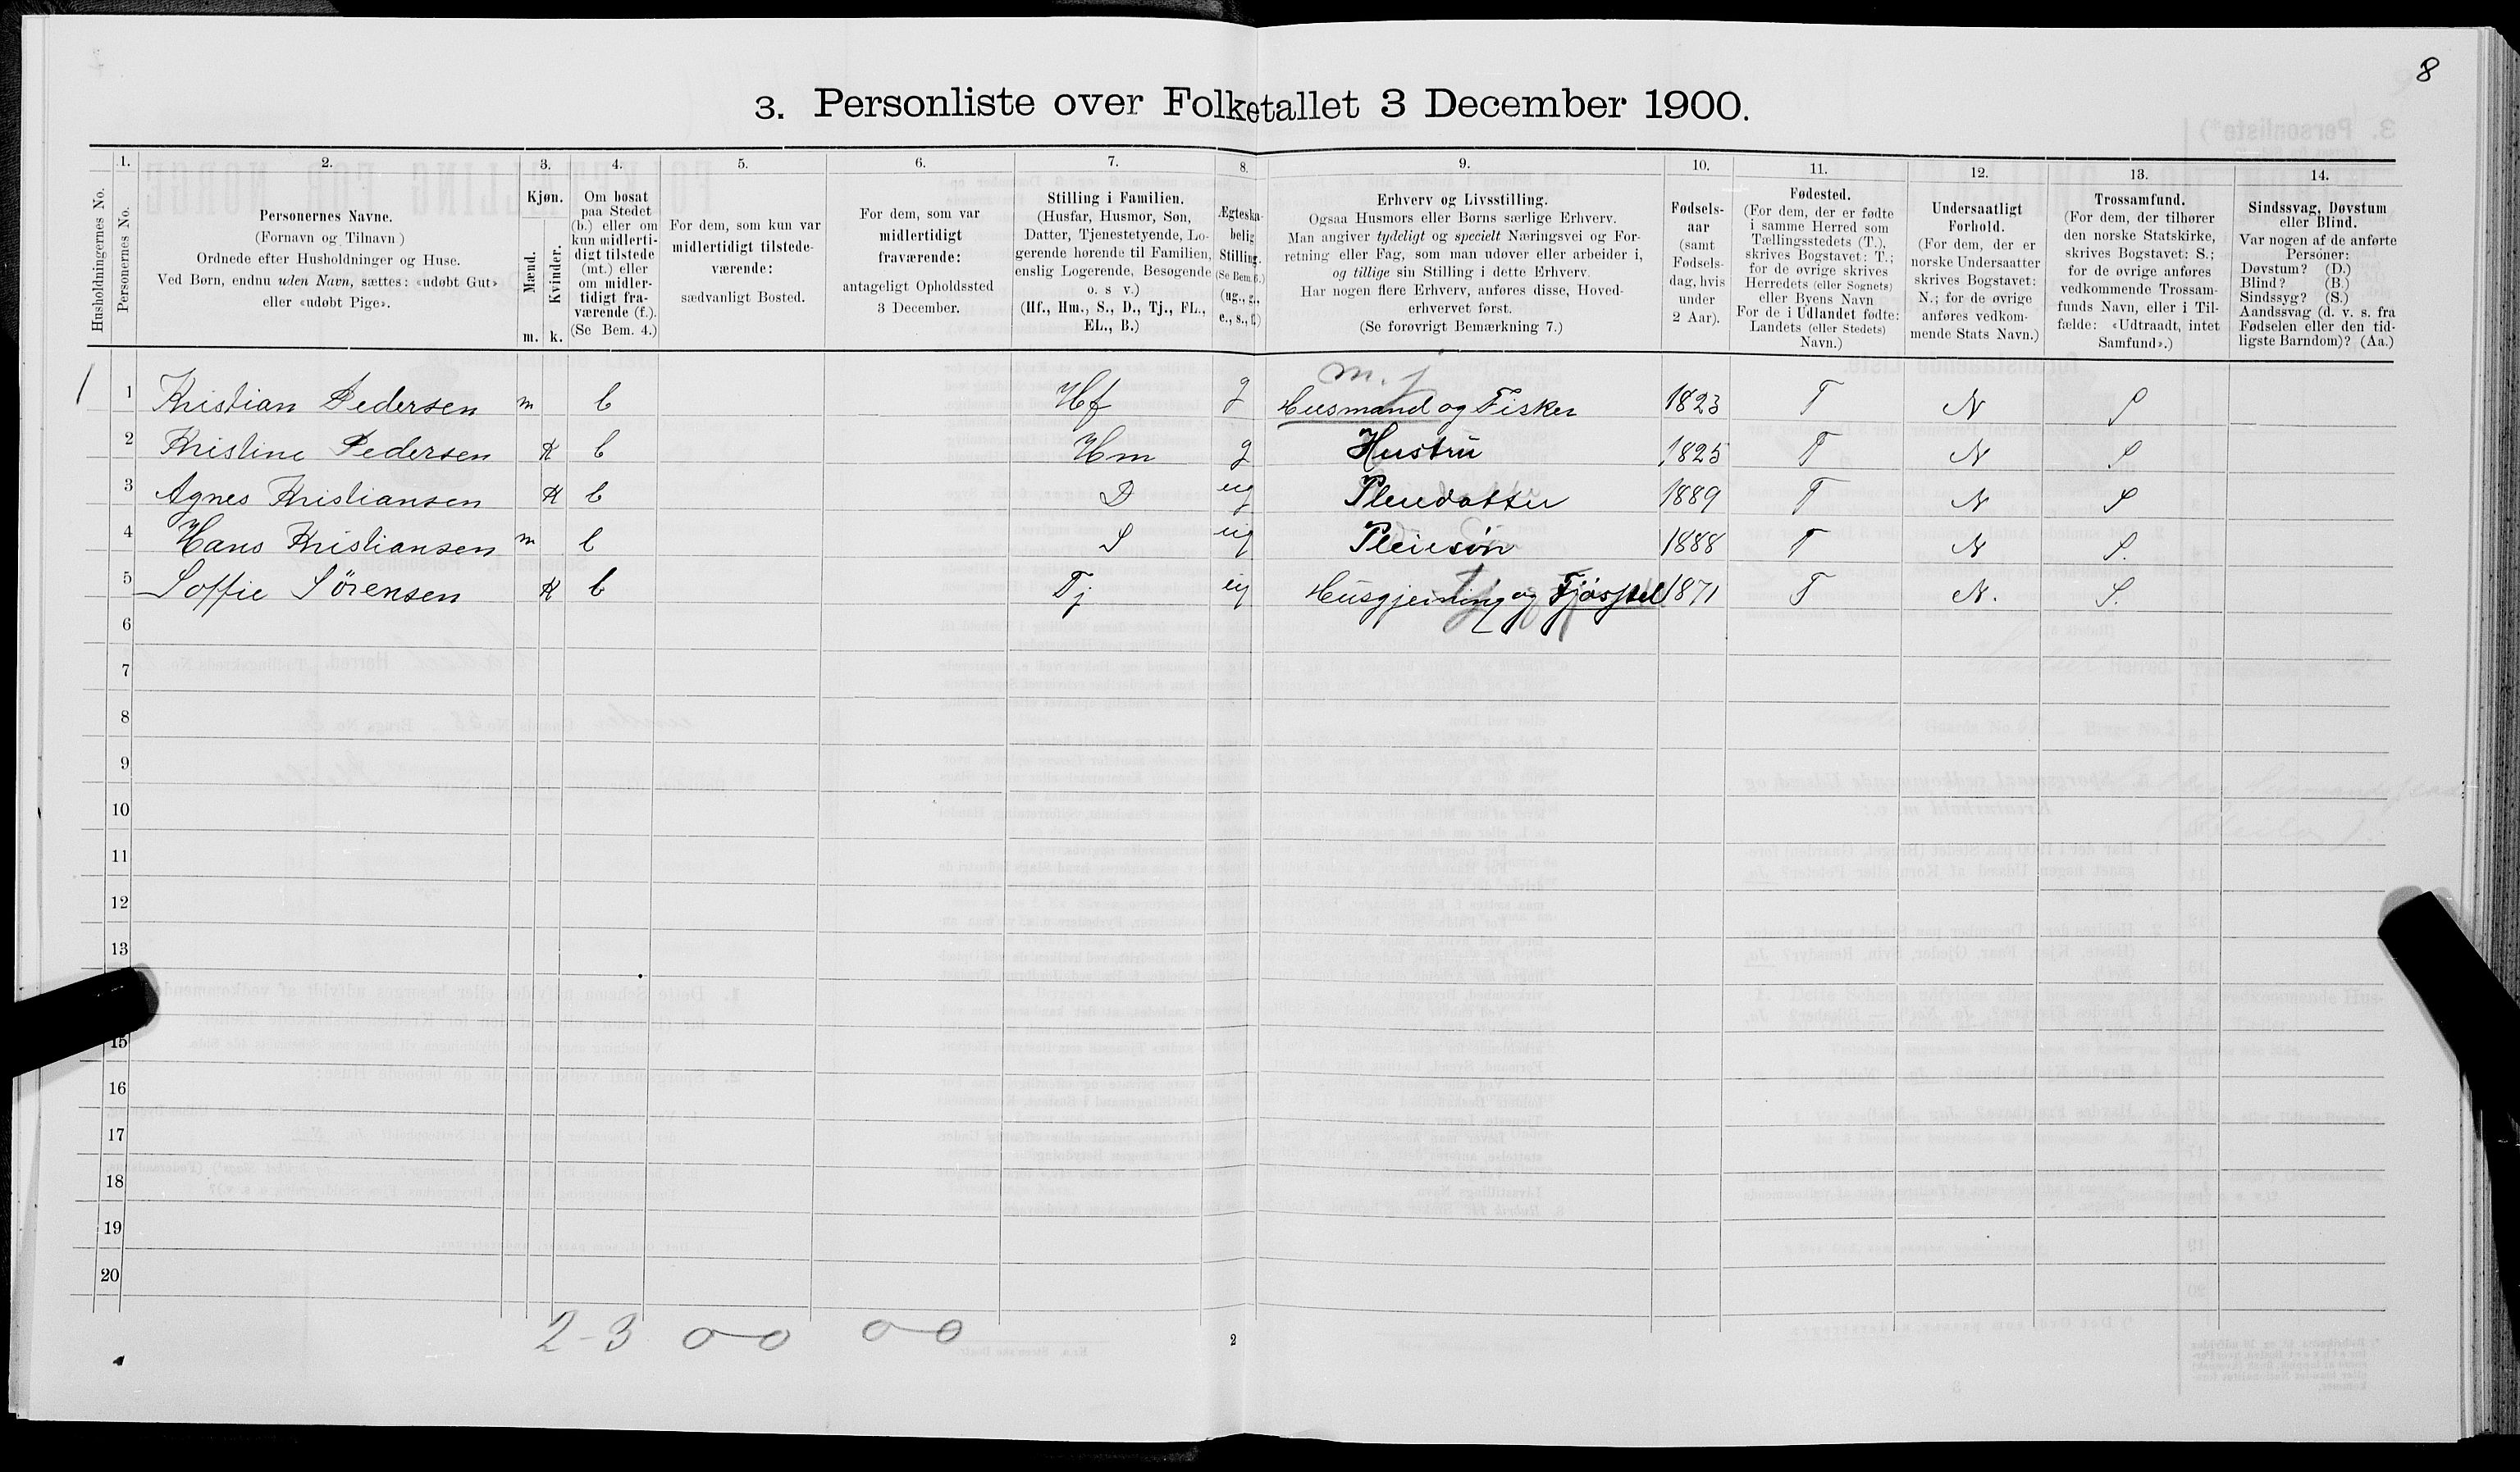 8
3. Personliste over Folketallet 3 December 1900.
Husholdningernes No.
1.
Personernes No.
2.
Personernes Navne.
(Fornavn og Tilnavn)
Ordnede efter Husholdninger og Huse.
Ved Børn, endnu uden Navn, sættes: «udøbt Gut»
eller «udøbt Pige».
3.
Kjøn.
Mænd.
Kvinder.
m. k.
4.
Om bosat
paa Stedet
(b.) eller om
kun midlerti-
digt tilstede
(mt.) eller
om midler-
tidigt fra-
værende (f.).
(Se Bem. 4.)
5.
For dem, som kun var
midlertidigt tilstede-
værende:
sædvanligt Bosted.
6.
For dem, som var
midlertidigt
fraværende:
antageligt Opholdssted
3 December.
7.
Stilling i Familien.
(Husfar, Husmor, Søn,
Datter, Tjenestetyende, Lo-
gerende hørende til Familien,
enslig Logerende, Besøgende
o. s v.)
(Hf., Hm., S., D., Tj., FL.,
EL., B.)
8.
Ægteska-
belig
Stilling.
(Se Bem. 6.)
(ug., g.,
e., s., f.)
9.
Erhverv og Livsstilling.
Ogsaa Husmors eller Børns særlige Erhverv.
Man angiver tydeligt og specielt Næringsvei og For-
retning eller Fag, som man udøver eller arbeider i,
og tillige sin Stilling i dette Erhverv.
Har nogen flere Erhverv, anføres disse, Hoved-
erhvervet først.
(Se forøvrigt Bemærkning 7.)
10.
Fødsels-
aar
(samt
Fødsels-
dag, hvis
under
2 Aar).
11.
Fødested.
(For dem, der er fødte
i samme Herred som
Tællingsstedets (T.),
skrives Bogstavet: T.;
for de øvrige skrives
Herredets (eller Sognets)
eller Byens Navn
For de i Udlandet fødte:
Landets (eller Stedets)
Navn.)
12.
Undersaatligt
Forhold.
(For dem, der er
norske Undersaatter
skrives Bogstavet:
N.; for de øvrige
anføres vedkom-
mende Stats Navn.)
13.
Trossamfund.
(For dem, der tilhører
den norske Statskirke,
skrives Bogstavet: S.;
for de øvrige anføres
vedkommende Trossam-
funds Navn, eller i Til-
fælde: «Udtraadt, intet
Samfund».)
14.
Sindssvag, Døvstum
eller Blind.
Var nogen af de anførte
Personer:
Døvstum? (D.)
Blind? (B.)
Sindssyg? (S.)
Aandssvag (d. v. s. fra
Fødselen eller den tid-
ligste Barndom)? (Aa.)
m. j
1 1 Kristian Pedersen m b Hf g Husmand og Fisker 1823 T N S
2 Kristine Pedersen K b Hm g Hustru 1825 T N S
3 Agnes Kristiansen K b D ug Pleiedatter 1889 T N S
4 Hans Kristiansen m b S ug Pleiesøn 1888 T N S.
5 Soffie Sörensen K b Tj ug Husgjerning og Fjösstel 1871 T N. S.
6
7
8
9
10
11
12
13
15
16
17
18
19
20
2-3 0-0 0-0
2